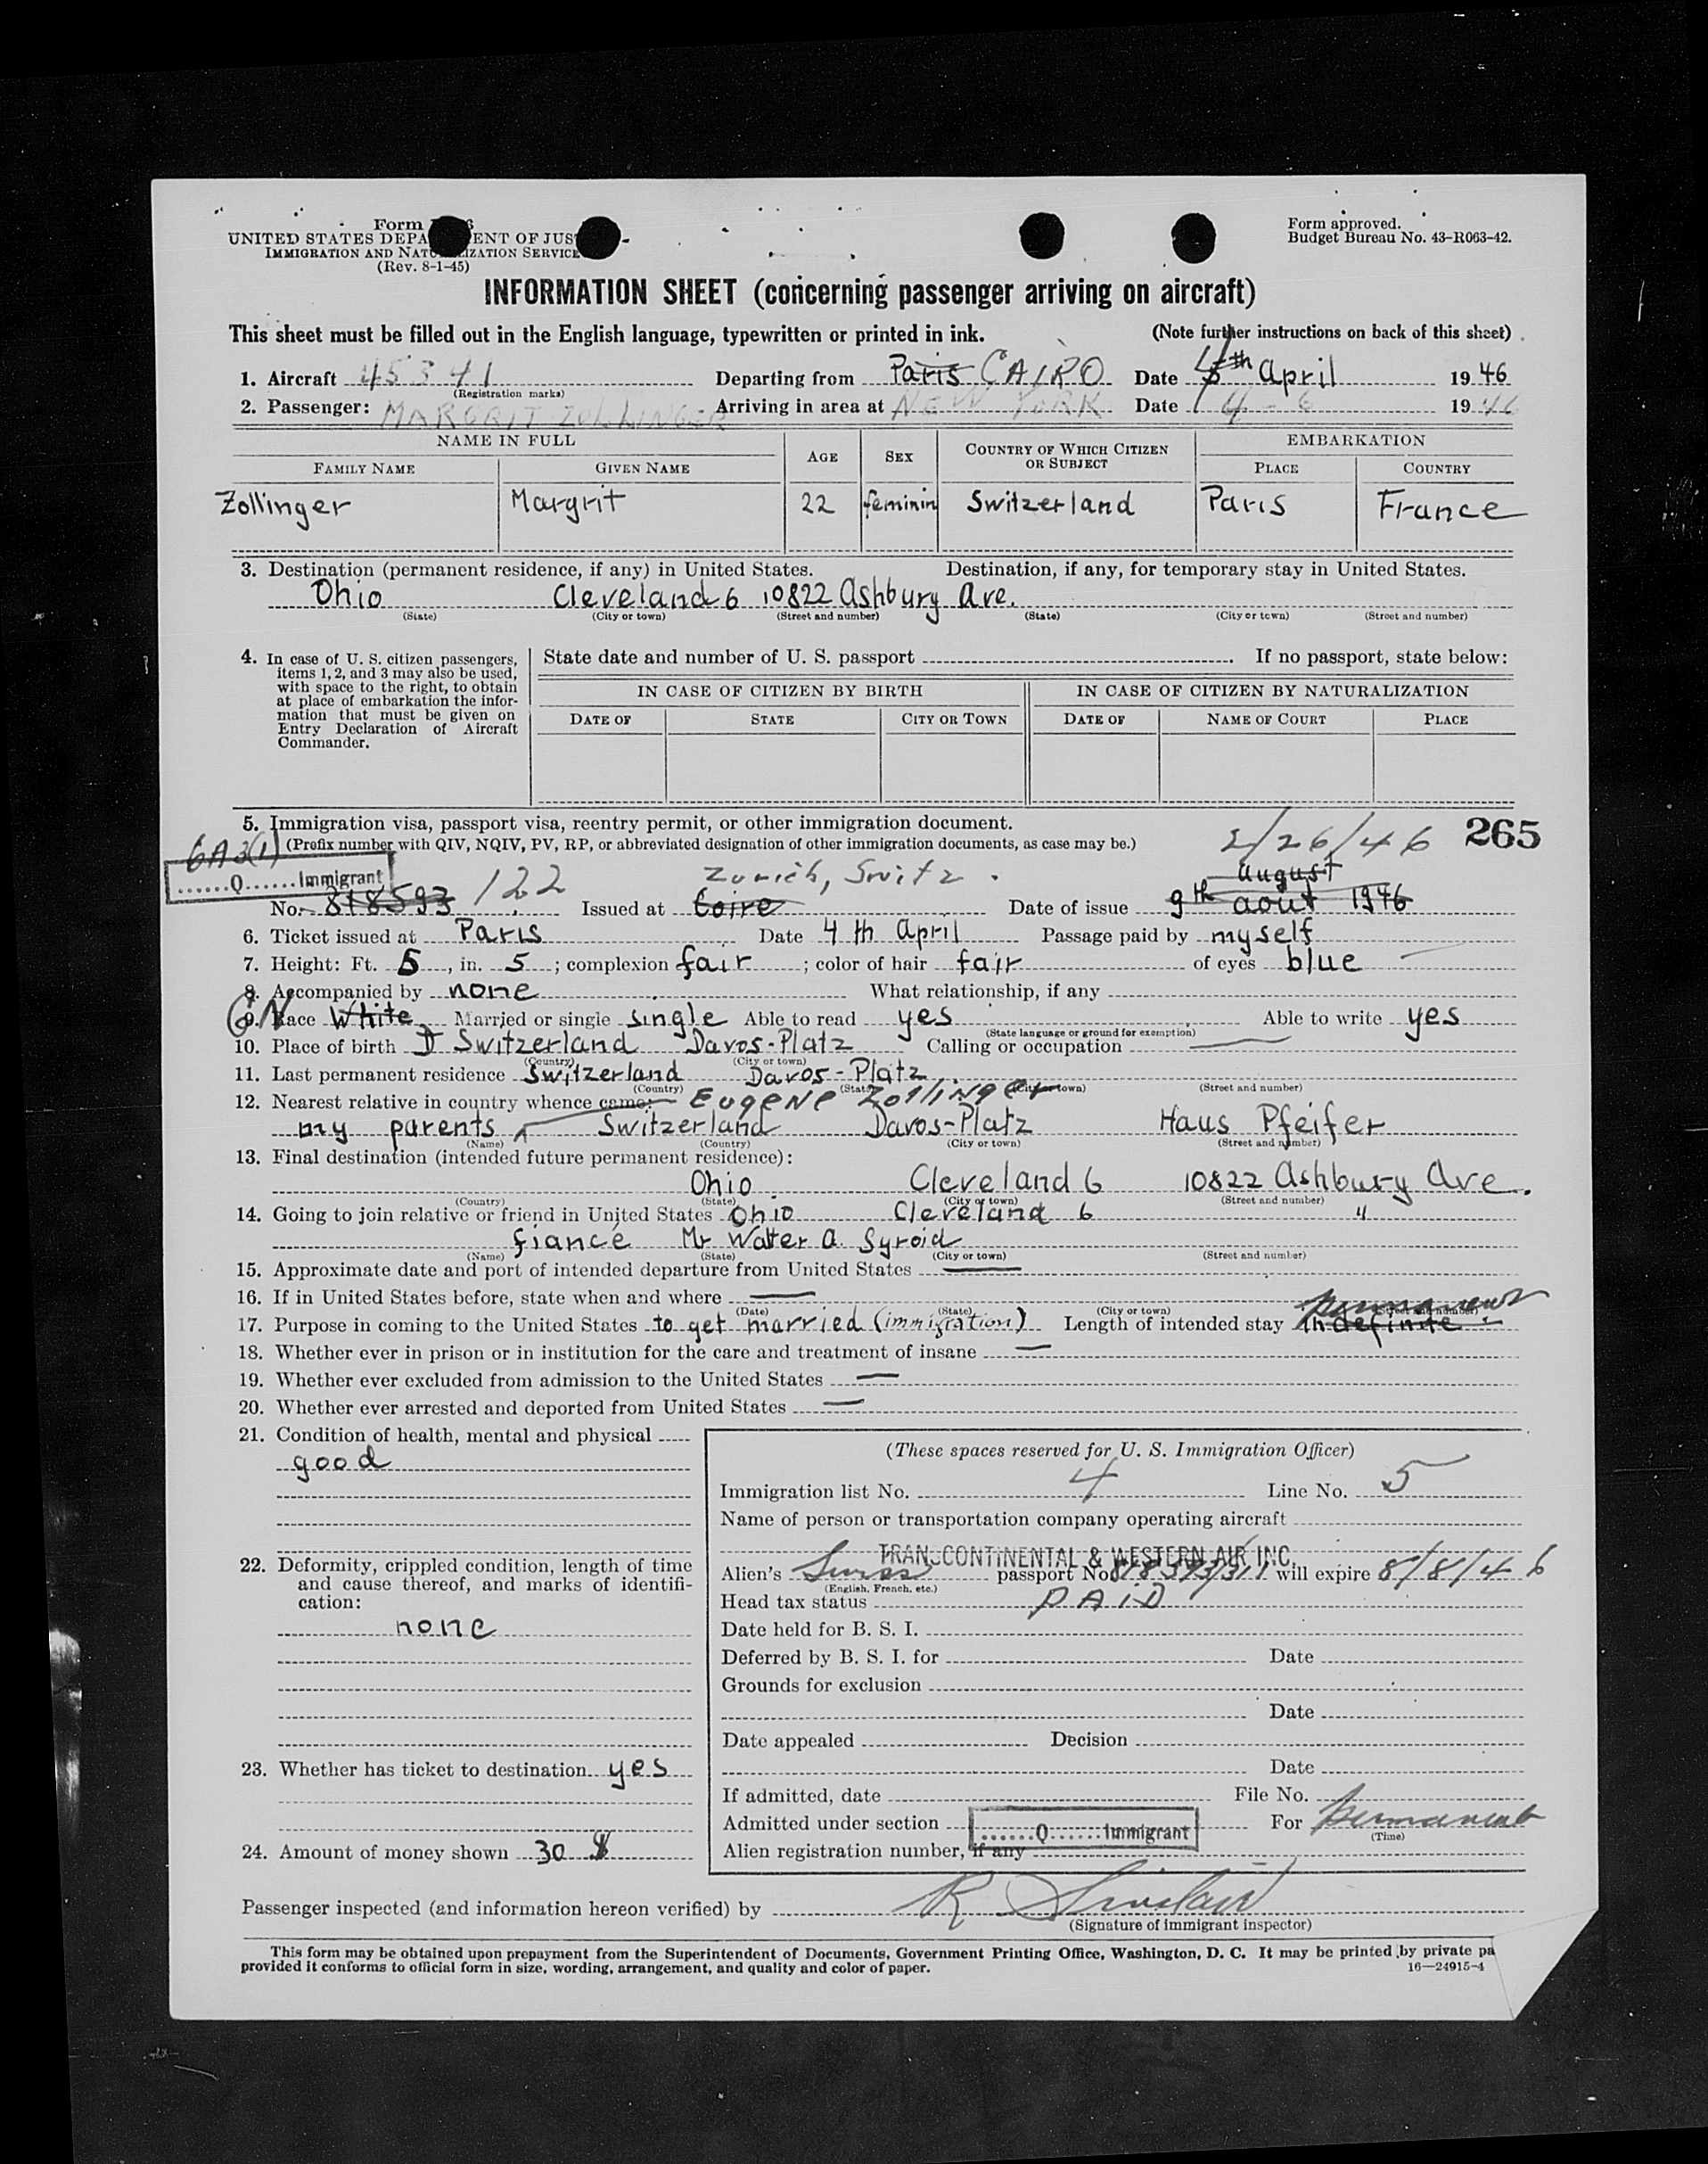 Form
UNITED STATES DEPA ENT OF JUS
IMMIGRATION AND NATU IZATION SERVICE
(Rev. 8-1-45)
Form approved.
Budget Bureau No. 43-R063-42.
INFORMATION SHEET (concerning passenger arriving on aircraft)
This sheet must be filled out in the English language, typewritten or printed in ink. (Note further instructions on back of this sheet)
1. Aircraft 45341 Departing from Paris CAIRO Date th April 1946
(Registration marks)
2. Passenger: MARGRIT ZOLLINGER Arriving in area at NEW YORK Date 4-6 1946
NAME IN FULL AGE SEX COUNTRY OF WHICH CITIZEN OR SUBJECT EMBARKATION
FAMILY NAME GIVEN NAME PLACE COUNTRY
Zollinger Margrit 22 feminin Switzerland Paris France
3. Destination (permanent residence, if any) in United States. Destination, if any, for temporary stay in United States.
Ohio Cleveland 6 10822 Ashbury Ave.
(State) (City or town) (Street and number) (State) (City or town) (Street and number)
4. In case of U. S. citizen passengers, items 1, 2, and 3 may also be used, with space to the right, to obtain at place of embarkation the information that must be given on Entry Declaration of Aircraft Commander.
State date and number of U. S. passport . If no passport, state below:
IN CASE OF CITIZEN BY BIRTH IN CASE OF CITIZEN BY NATURALIZATION
DATE OF STATE CITY OR TOWN DATE OF NAME OF COURT PLACE
5. Immigration visa, passport visa, reentry permit, or other immigration document.
6A3(1) (Prefix number with QIV, NQIV, PV, RP, or abbreviated designation of other immigration documents, as case may be.) 2/26/46 265
Q Immigrant
Zurich, Switz. August
No. 818593 122 Issued at Coire Date of issue 9th aout 1946
6. Ticket issued at Paris Date 4th April Passage paid by myself
7. Height: Ft. 5, in. 5; complexion fair; color of hair fair of eyes blue
8. Accompanied by none What relationship, if any
9. Race White Married or single single Able to read yes Able to write yes
(State language or ground for exemption)
10. Place of birth Switzerland Davos-Platz Calling or occupation
(Country) (City or town)
11. Last permanent residence Switzerland Davos-Platz
(Country) (State) (City or town) (Street and number)
12. Nearest relative in country whence came: EUGENE Zollinger
my parents Switzerland Davos-Platz Haus Pfeifer
(Name) (Country) (City or town) (Street and number)
13. Final destination (intended future permanent residence):
Ohio Cleveland 6 10822 Ashbury Ave.
(Country) (State) (City or town) (Street and number)
14. Going to join relative or friend in United States Ohio Cleveland 6 "
fiancé Mr Walter A. Syroid
(Name) (State) (City or town) (Street and number)
15. Approximate date and port of intended departure from United States
16. If in United States before, state when and where
(Date) (State) (City or town) (Street and number)
permanent
17. Purpose in coming to the United States to get married (immigration) Length of intended stay indefinite
18. Whether ever in prison or in institution for the care and treatment of insane
19. Whether ever excluded from admission to the United States
20. Whether ever arrested and deported from United States
21. Condition of health, mental and physical
good
22. Deformity, crippled condition, length of time and cause thereof, and marks of identification:
none
23. Whether has ticket to destination yes
24. Amount of money shown 30 $
(These spaces reserved for U. S. Immigration Officer)
Immigration list No. 4 Line No. 5
Name of person or transportation company operating aircraft
TRANSCONTINENTAL & WESTERN AIR INC.
Alien's Swiss passport No. 818593/311 will expire 8/8/46
(English, French, etc.)
Head tax status PAID
Date held for B. S. I.
Deferred by B. S. I. for Date
Grounds for exclusion
Date
Date appealed Decision
Date
If admitted, date File No.
Admitted under section Q Immigrant For permanent
(Time)
Alien registration number, if any
Passenger inspected (and information hereon verified) by R Sinclair
(Signature of immigrant inspector)
This form may be obtained upon prepayment from the Superintendent of Documents, Government Printing Office, Washington, D. C. It may be printed by private pa
provided it conforms to official form in size, wording, arrangement, and quality and color of paper. 16—24915-4